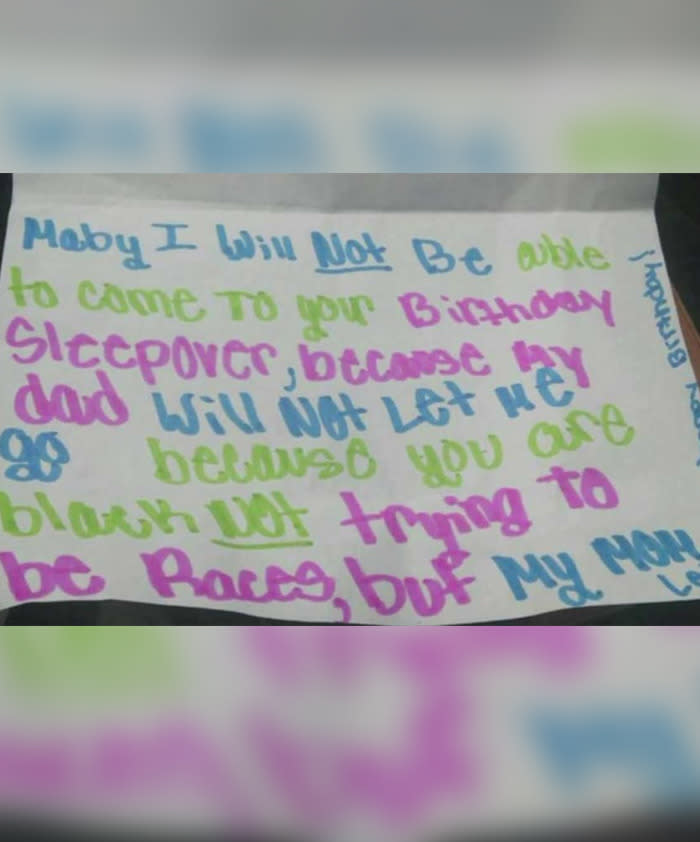 Maby I Will Not Be able
to come To your Birthday
Sleepover, because My
dad Will Not Let Me
go because you are
black Not trying to
be Races, but My MOM
Birthday